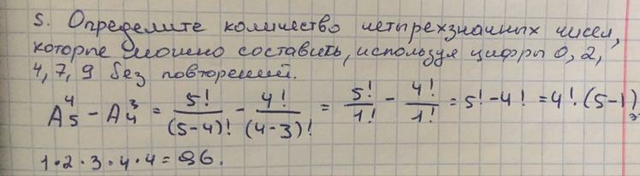 5. Определите количество четырехзначных чисел,
которые можно составить, используя цифры 0, 2,
4, 7, 9 без повторений.
A₅⁴ - A₄³ = 5!/(5-4)! - 4!/(4-3)! = 5!/1! - 4!/1! = 5! - 4! = 4! · (5-1) =
1·2·3·4·4 = 96.